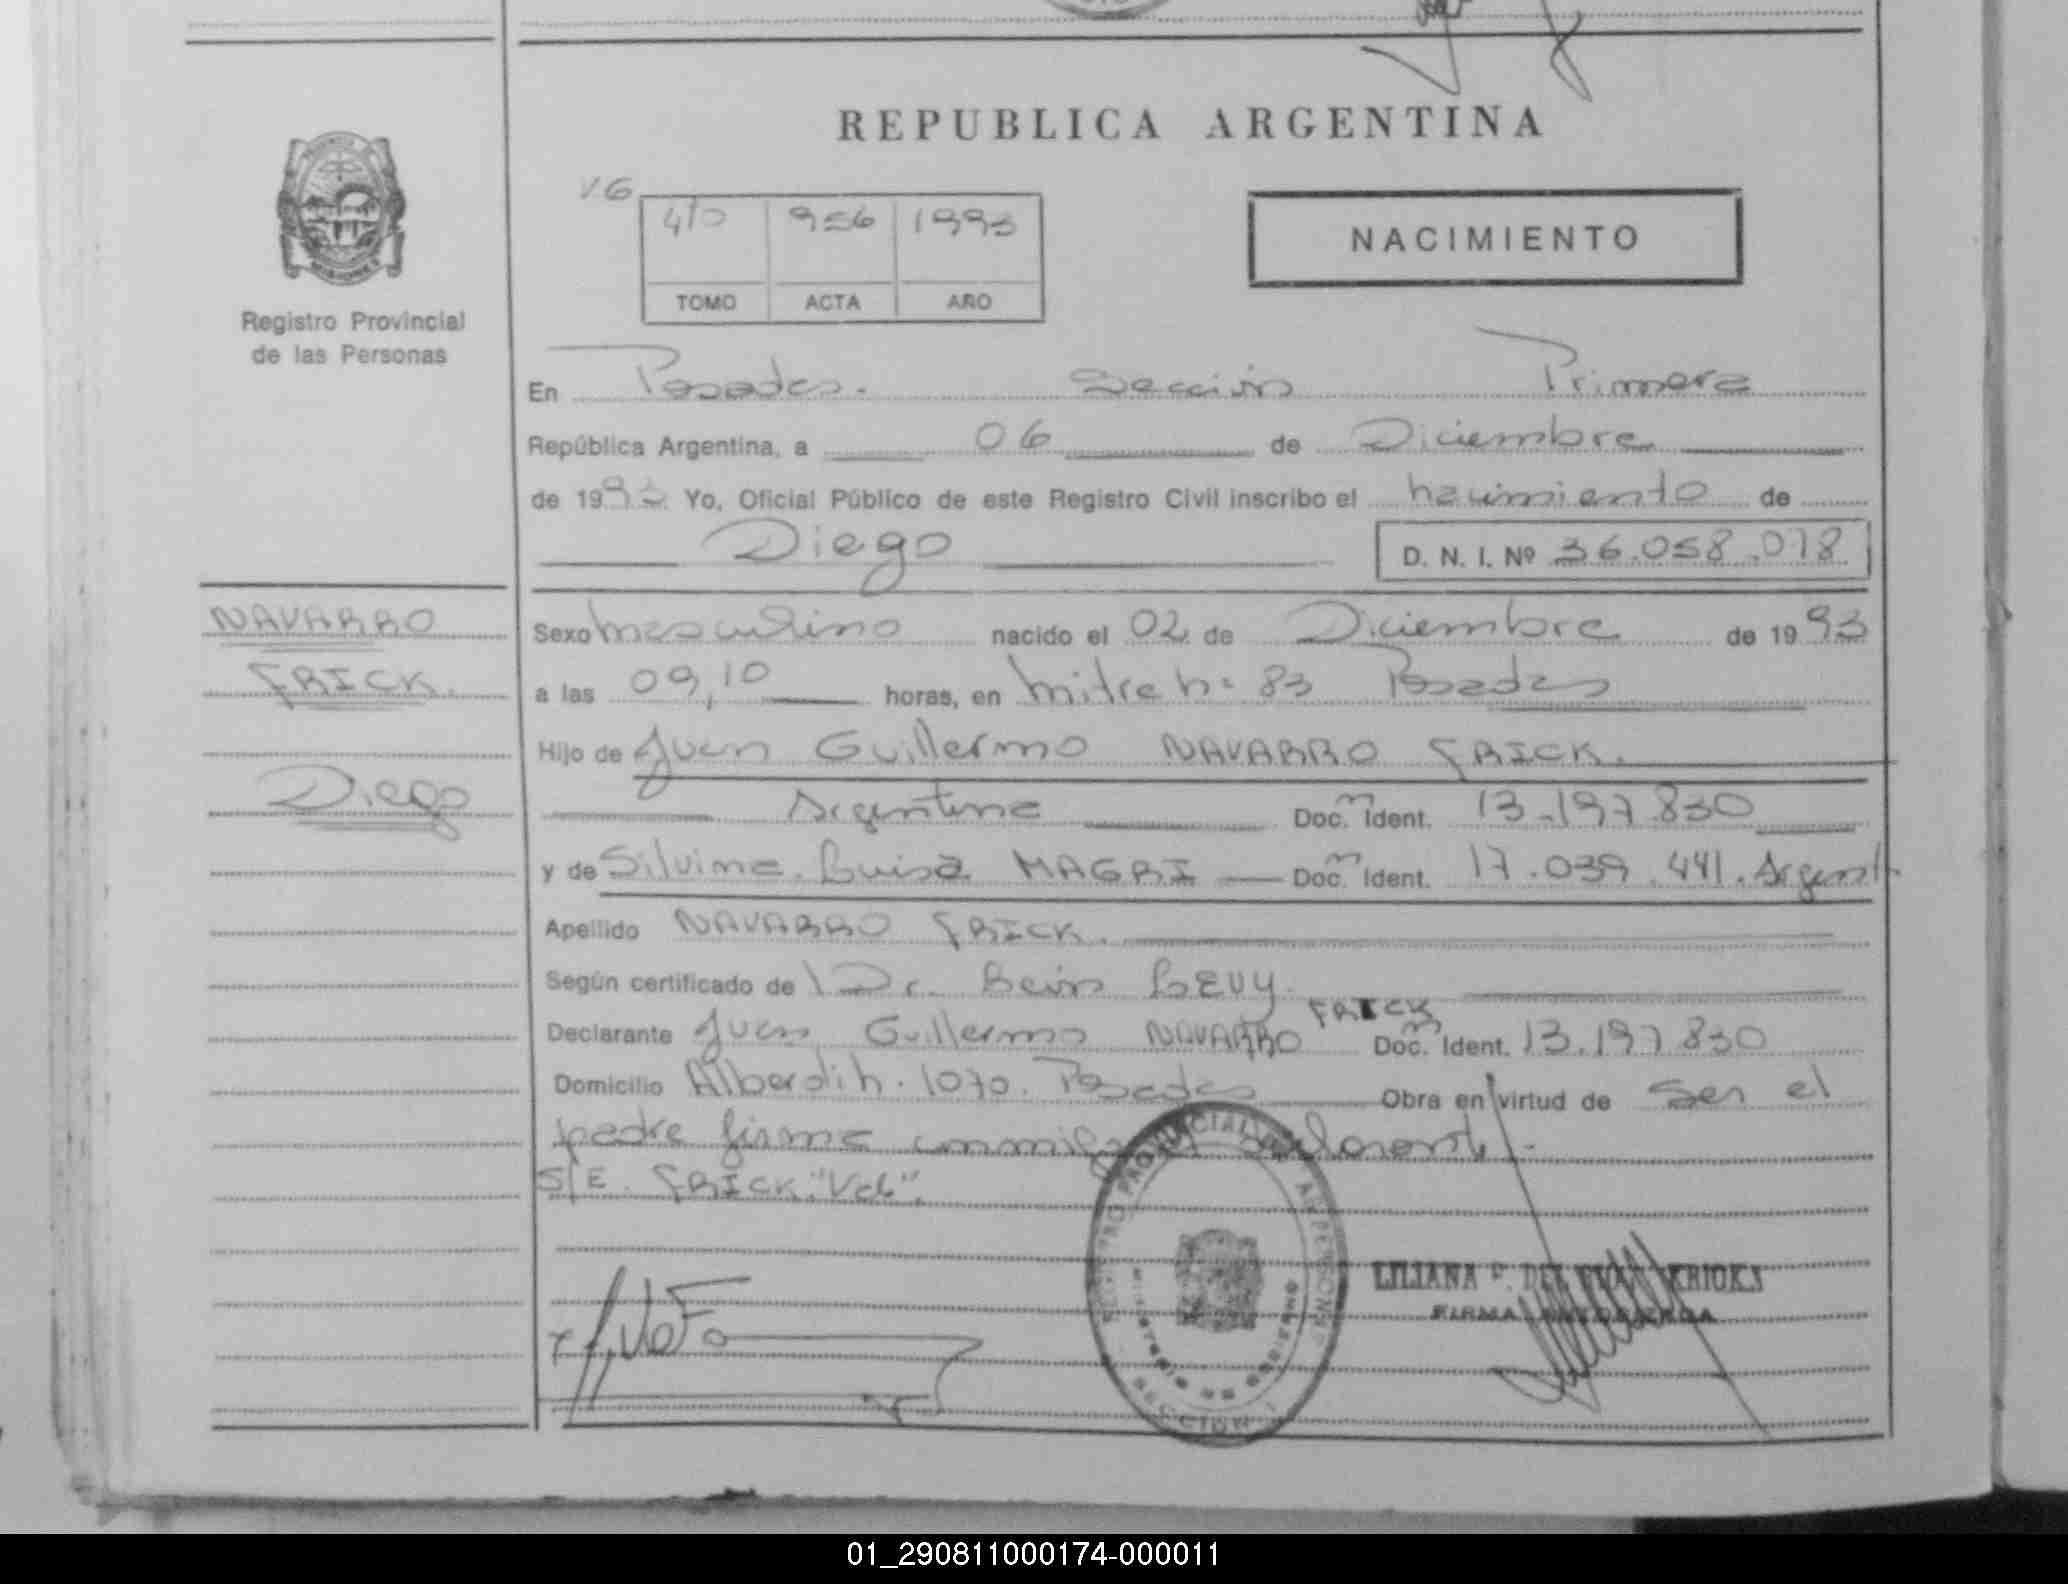 REPUBLICA ARGENTINA
V6
4/0 956 1993
TOMO ACTA AÑO
NACIMIENTO
Registro Provincial
de las Personas
En Posadas. Sección Primera
República Argentina, a 06 de Diciembre
de 1993 Yo, Oficial Público de este Registro Civil inscribo el nacimiento de
Diego
D. N. I. Nº 36.058.078
NAVARRO
FRICK.
Diego
Sexo masculino nacido el 02 de Diciembre de 1993
a las 09,10 horas, en Mitre n= 83 Posadas
Hijo de Juan Guillermo NAVARRO FRICK.
Argentina Doc. Ident. 13.197.830
y de Silvina Luisa MAGRI Doc. Ident. 17.039.441. Argent
Apellido NAVARRO FRICK.
Según certificado de l Dr. LEVY.
FRICK
Declarante Juan Guillermo NAVARRO Doc. Ident. 13.197.830
Domicilio Alberdi n. 1070. Posadas Obra en virtud de ser el
padre firma
S/E. FRICK "Vale".
REGISTRO PROVINCIAL DE LAS PERSONAS
MINISTERIO DE GOBIERNO
SECCION 1
LILIANA
FIRMA AUTORIZADA
01_290811000174-000011